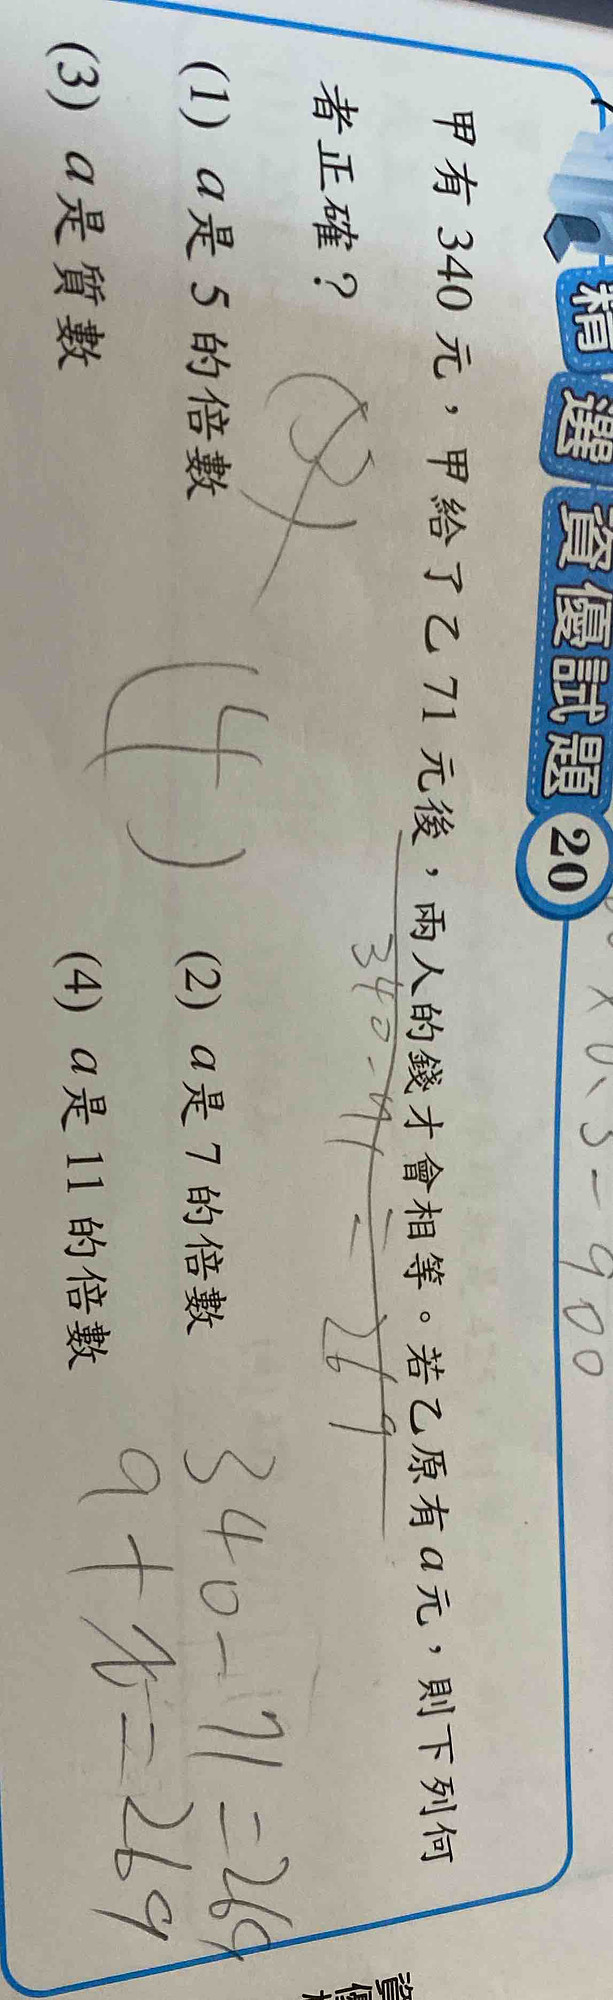 ×0.5-900
精選資優試題 20
甲有340元，甲給了乙71元後，兩人的錢才會相等。若乙原有a元，則下列何
者正確？
340-71=269
(3)
(4)
(1) a是5的倍數
(2) a是7的倍數
(3) a是質數
(4) a是11的倍數
340-71=269
a+71=269
資優